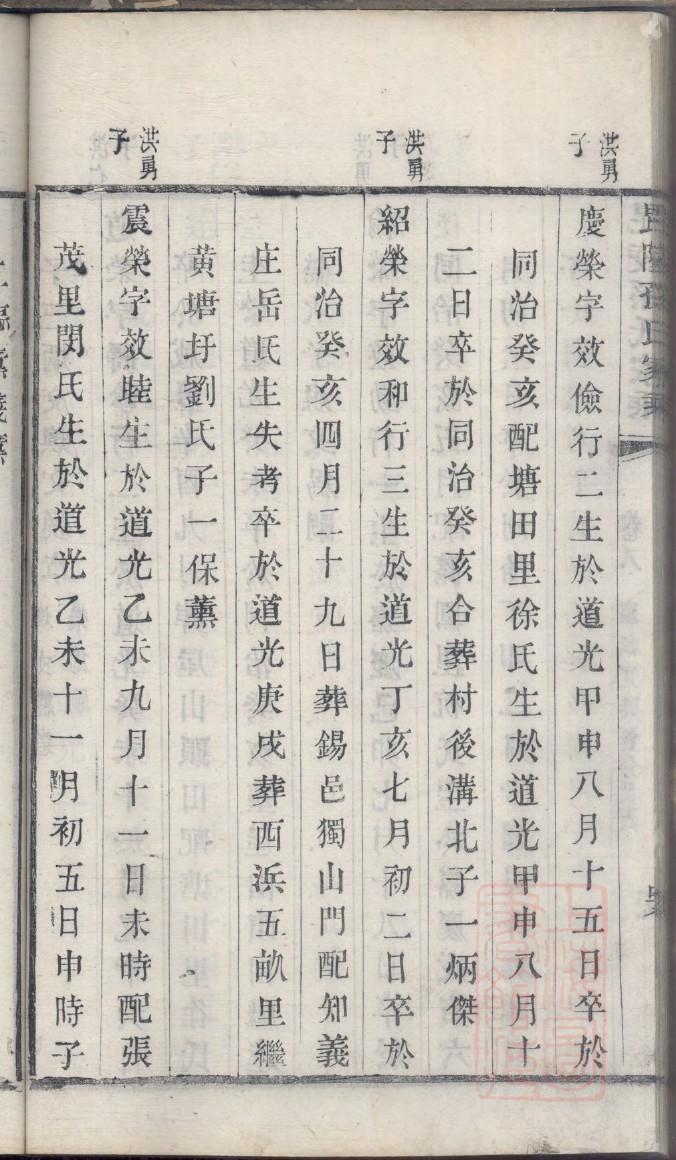 毘陵孫氏家乘
洪勇子
慶榮字效儉行二生於道光甲申八月十五日卒於
同治癸亥配塘田里徐氏生於道光甲申八月十
二日卒於同治癸亥合葬村後溝北子一炳傑
洪勇子
紹榮字效和行三生於道光丁亥七月初二日卒於
同治癸亥四月二十九日葬錫邑獨山門配知義
庄岳氏生失考卒於道光庚戌葬西浜五畝里繼
黄塘圩劉氏子一保薰
洪勇子
震榮字效睦生於道光乙未九月十一日未時配張
茂里閔氏生於道光乙未十一月初五日申時子